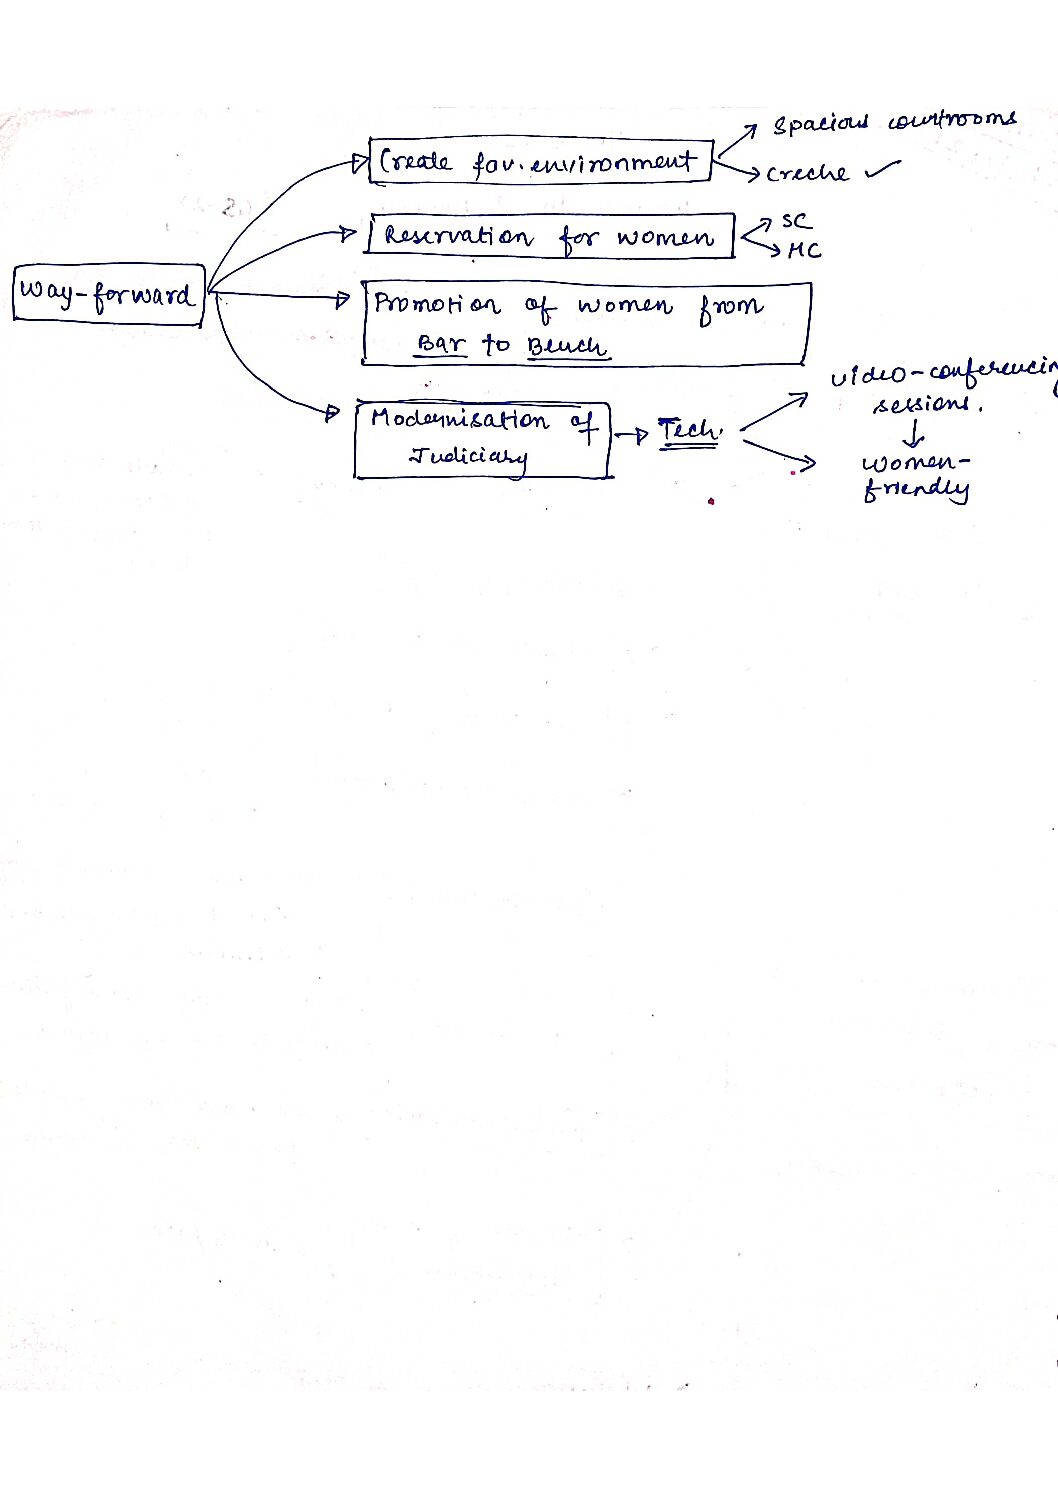 Spacious courtrooms
Create fav. environment
Creche ✓
Reservation for women
SC
HC
Way-forward
Promotion of women from
Bar to Bench
Modernisation of
Judiciary
Tech.
video-conferencing
sessions.
women-
friendly